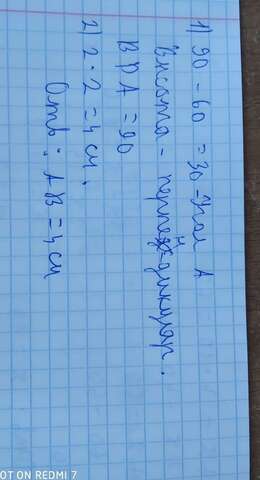 1) 90 - 60 = 30 - угол А
Высота - перпендикуляр.
ВРА = 90
2) 2 · 2 = 4 см.
Отв: АВ = 4 см
OT ON REDMI 7